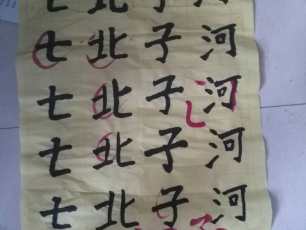 七北子河
七北子河
七北子河
七北子河
七北子河